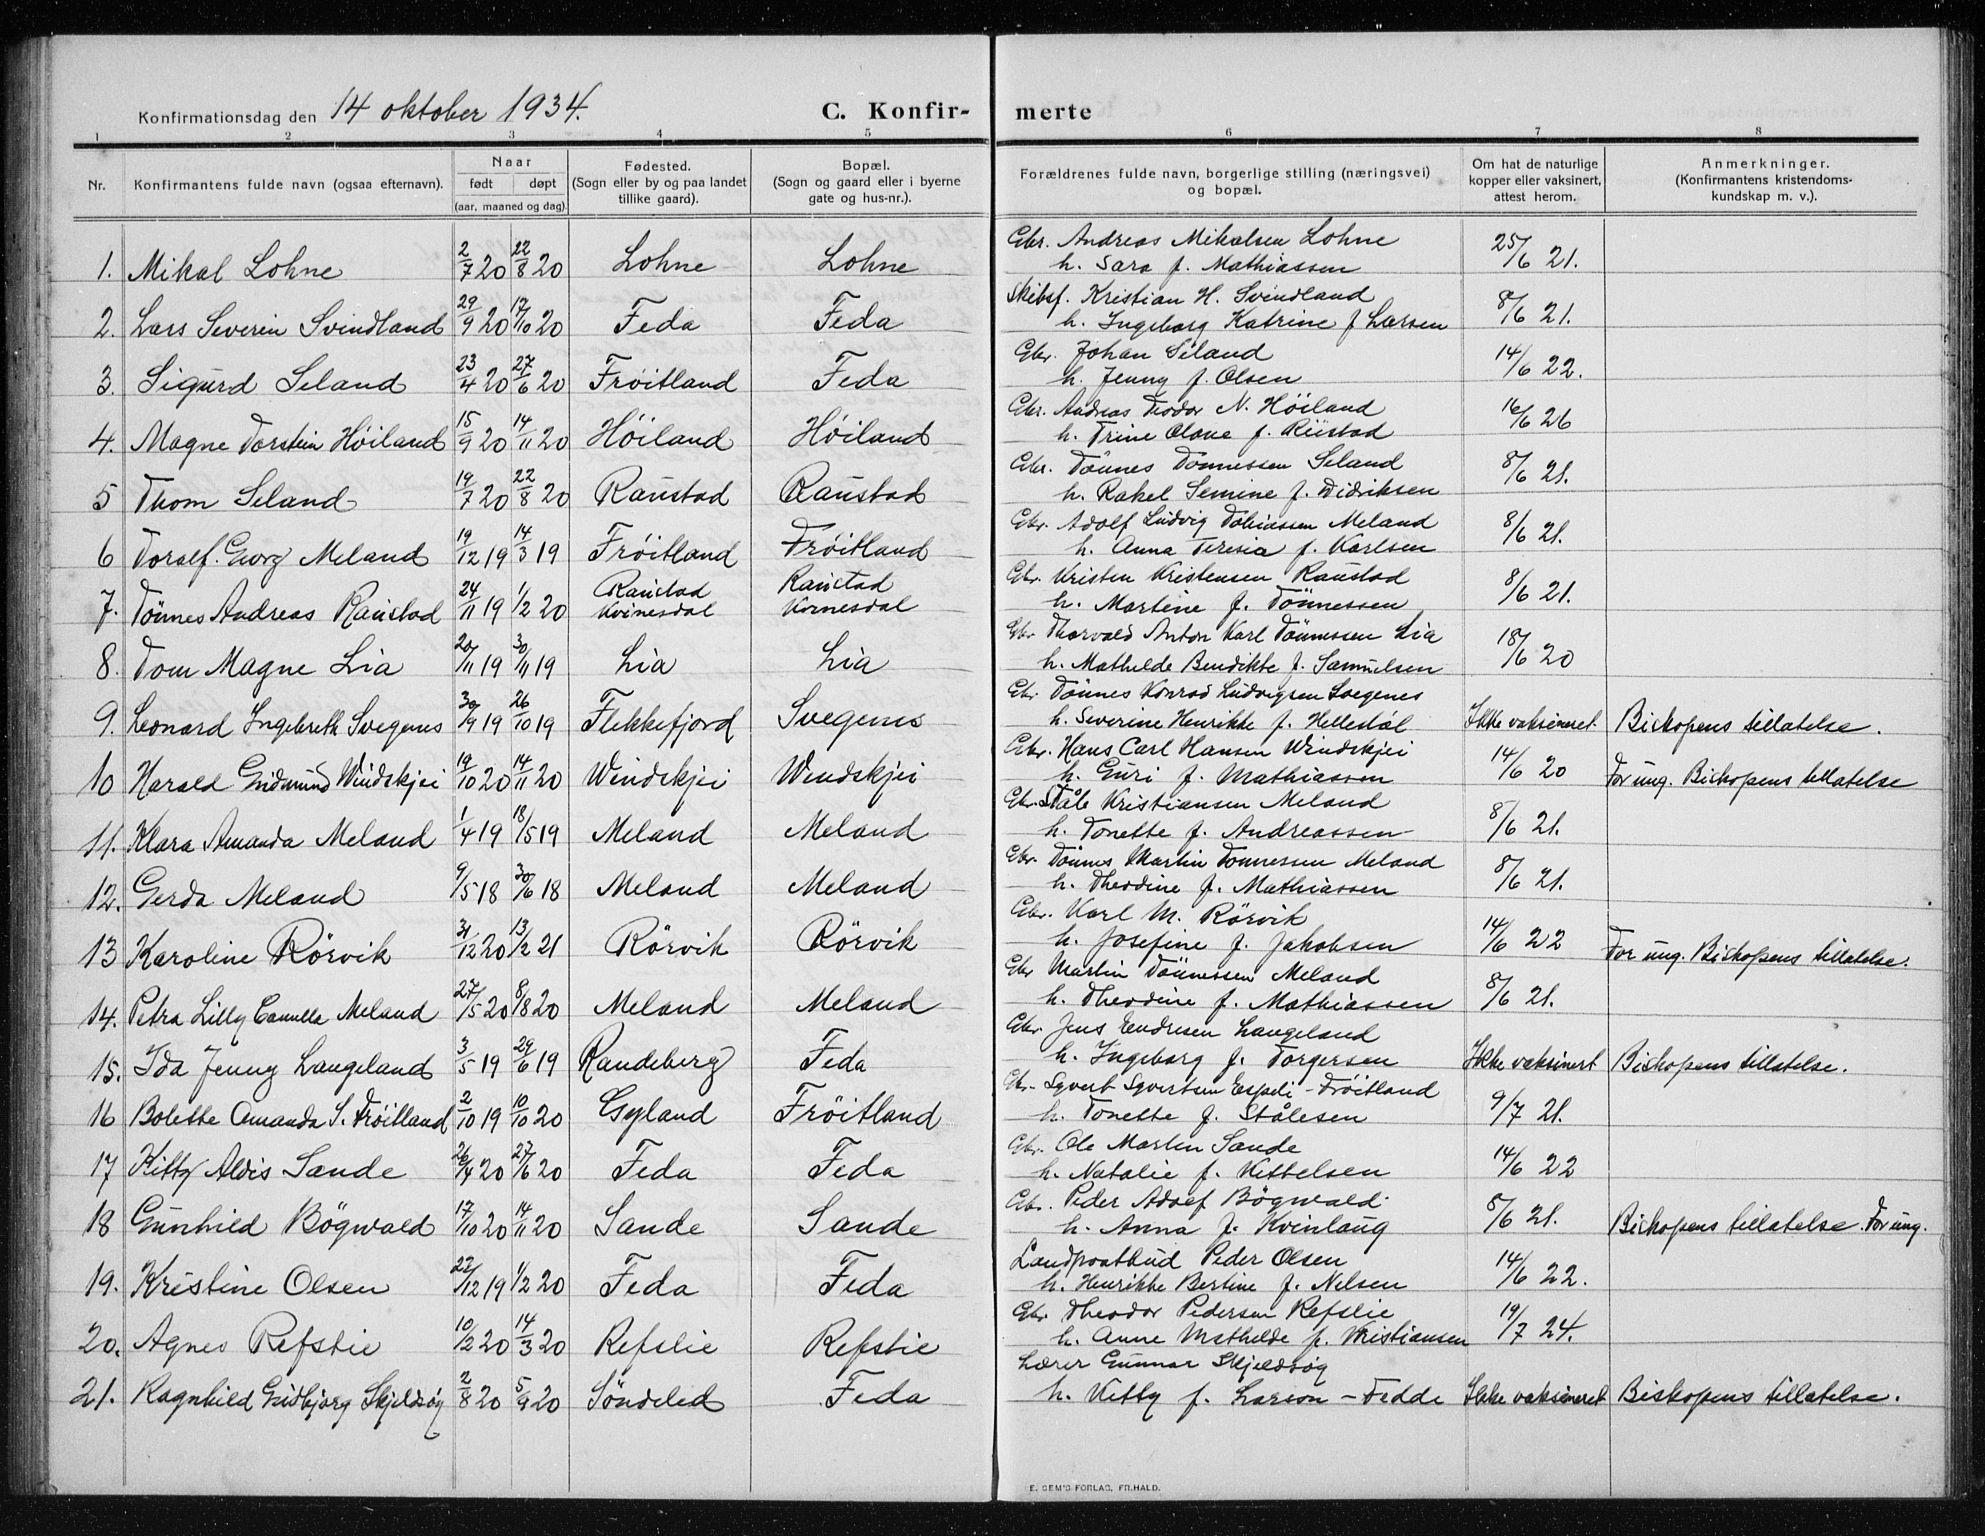 Konfirmationsdag den 14 oktober 1934. C. Konfir- merte
1 2 3 4 5 6 7 8
Nr. Konfirmantens fulde navn (ogsaa efternavn). Naar født døpt (aar, maaned og dag). Fødested. (Sogn eller by og paa landet tillike gaard). Bopæl. (Sogn og gaard eller i byerne gate og hus-nr.). Forældrenes fulde navn, borgerlige stilling (næringsvei) og bopæl. Om hat de naturlige kopper eller vaksinert, attest herom. Anmerkninger. (Konfirmantens kristendoms- kundskap m. v.).
1. Mikal Lohne 2/7 20 22/8 20 Lohne Lohne Gbr. Andreas Mikalsen Lohne h. Sara f. Mathiassen 25/6 21.
2. Lars Severin Svindland 29/9 20 17/10 20 Feda Feda Skibsf. Kristian H. Svindland h. Ingeborg Katrine f Larsen 8/6 21.
3. Sigurd Seland 23/4 20 27/6 20 Frøitland Feda Gbr. Johan Seland h. Jenny f. Olsen 14/6 22.
4. Magne Torstein Höiland 15/9 20 14/11 20 Höiland Höiland Gbr. Andreas Teodor N. Höiland h. Trine Olave f. Riistad 16/6 26
5 Thom Seland 19/7 20 22/8 20 Raustad Raustad Gbr. Tönnes Tönnessen Seland h. Rakel Semine f. Didriksen 8/6 21.
6 Toralf Georg Meland 19/12 19 14/3 19 Fröitland Fröitland Gbr. Adolf Ludvig Tobiassen Meland h. Anna Teresia f. Karlsen 8/6 21.
7. Tönnes Andreas Raustad 24/11 19 1/2 20 Raustad Kvinesdal Raustad Kvinesdal Gbr. Kristen Kristensen Raustad h. Martine f. Tönnessen 8/6 21.
8. Tom Magne Lia 20/11 19 30/11 19 Lia Lia Gbr Thorvald Anton Karl Tönnessen Lia h. Mathilde Bendikte f. Samuelsen 18/6 20
9. Leonard Ingebreth Svegens 30/9 19 26/10 19 Flekkefjord Svegens Gbr. Tönnes Konrad Ludvigsen Svegenes h. Severine Henrikke f. Hellestöl Ikke vaksineret Biskopens tillatelse.
10 Harald Gudmund Windskjei 19/10 20 14/11 20 Windskjei Windskjei Gbr. Hans Carl Hansen Windskjei h. Guri f. Mathiassen 14/6 20 For ung. Biskopens tillatelse
11. Klara Amanda Meland 1/4 19 18/5 19 Meland Meland Gbr. Ståle Kristiansen Meland h. Tonette f. Andreassen 8/6 21.
12. Gerda Meland 9/5 18 30/6 18 Meland Meland Gbr. Tönnes Martin Tönnessen Meland h. Theodine f. Mathiassen 8/6 21.
13 Karoline Rörvik 31/12 20 13/2 21 Rörvik Rörvik Gbr. Karl M. Rörvik h. Josefine f. Jakobsen 14/6 22 For ung. Biskopens tillatelse.
14. Petra Lilly Camilla Meland 27/5 20 8/8 20 Meland Meland Gbr Martin Tönnessen Meland h. Theodine f. Mathiassen 8/6 21.
15. Ida Jenny Langeland 3/5 19 29/6 19 Randeberg Feda Gbr. Jens Endresen Langeland h. Ingeborg f. Torgersen Ikke vaksinert Biskopens tillatelse.
16 Bolette Amanda S. Fröitland 2/10 19 10/10 20 Gyland Fröitland Gbr. Sqvert Sqvertsen Espeli - Fröitland h. Tonette f. Stålesen 9/7 21.
17 Kitty Aldis Sande 26/4 20 27/6 20 Feda Feda Gbr. Ole Martin Sande h. Natalie f. Kittelsen 14/6 22
18 Gunhild Bögwald 17/10 20 14/11 20 Sande Sande Gbr. Peder Adolf Bögwald h. Anna f. Kvinlaug 8/6 21. Biskopens tillatelse. For ung.
19. Kristine Olsen 22/12 19 1/2 20 Feda Feda Landpostbud Peder Olsen h. Henrikke Bertine f. Nelsen 14/6 22.
20. Agnes Refslie 10/2 20 14/3 20 Refslie Refslie Gbr. Theodor Pedersen Refslie h. Anne Mathilde f. Kristiansen 19/7 24.
21. Ragnhild Gudbjörg Skjeldsög 2/8 20 5/9 20 Söndeled Feda Lærer Gunnar Skjeldsög h. Kitty f. Larson - Fedde Ikke vaksineret Biskopens tillatelse.
E. SEM'S FORLAG, FR.HALD.